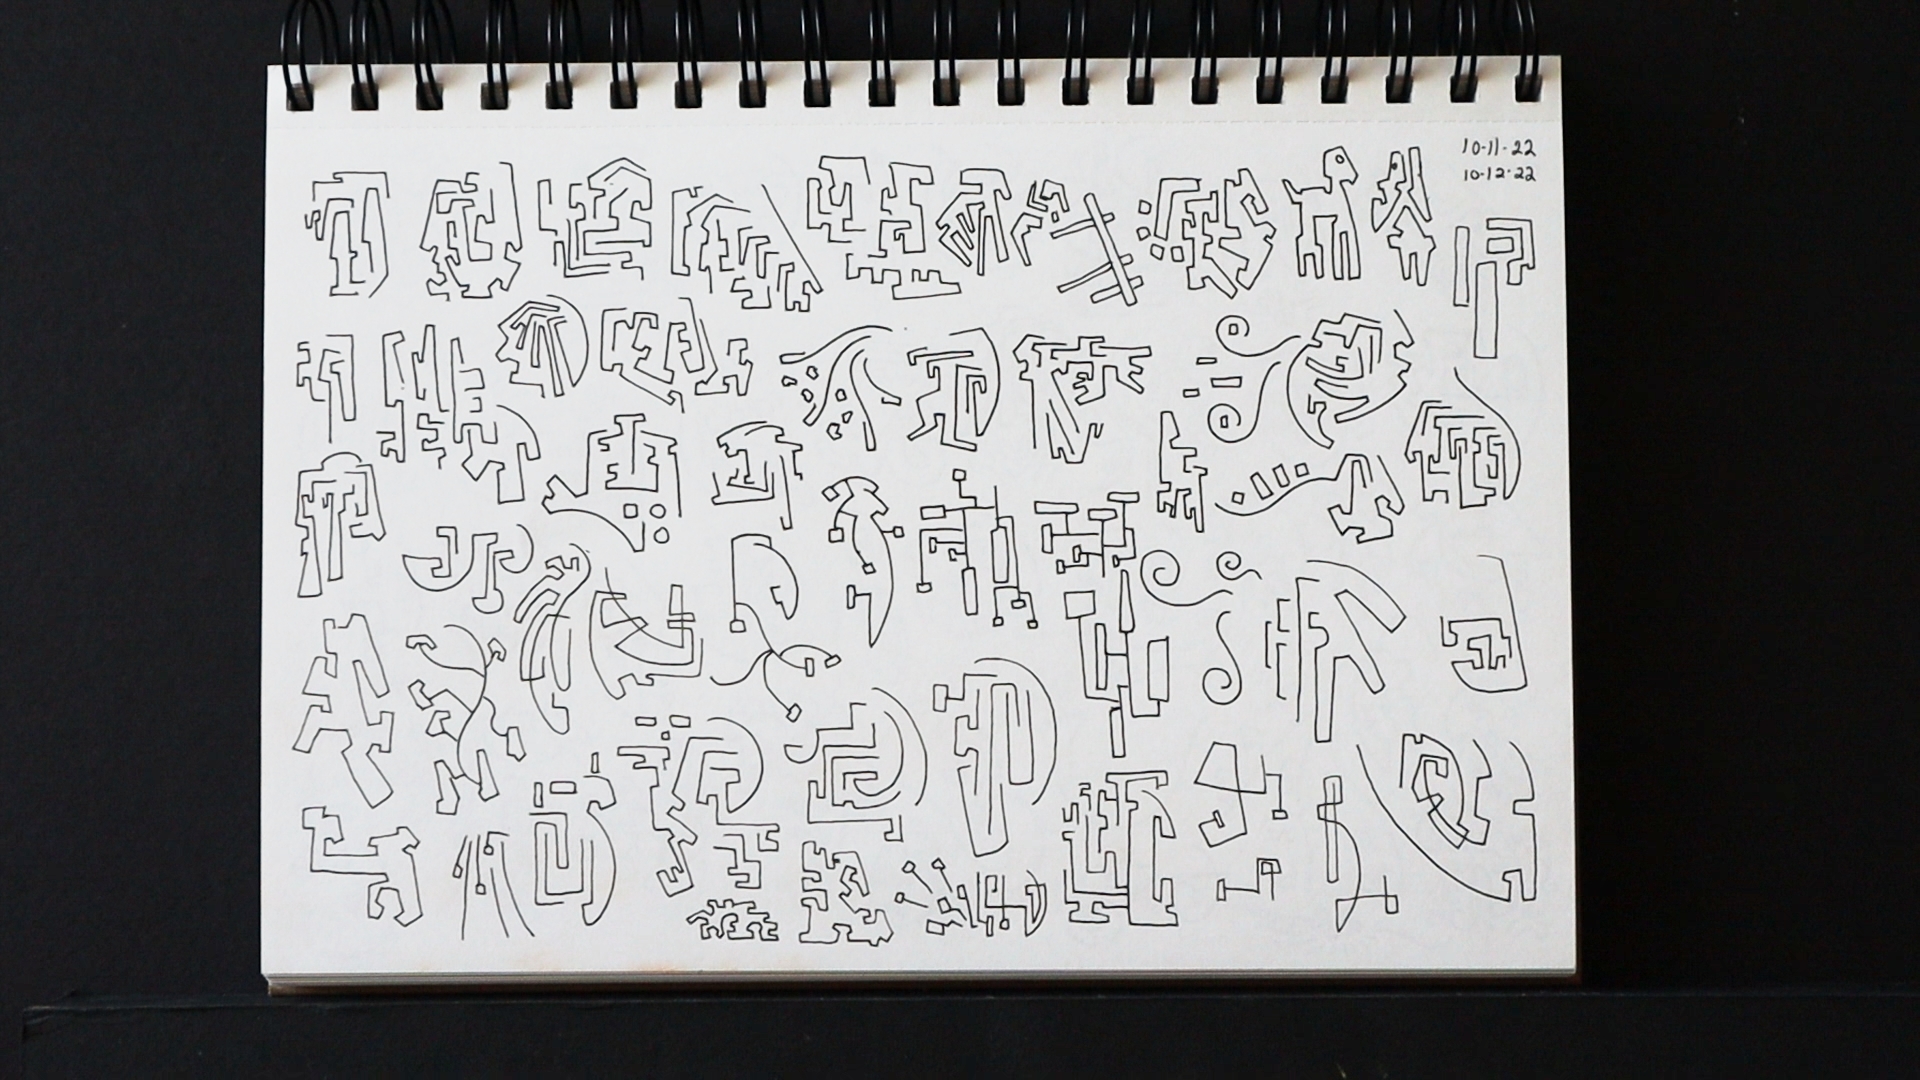 10-11-22
10-12-22